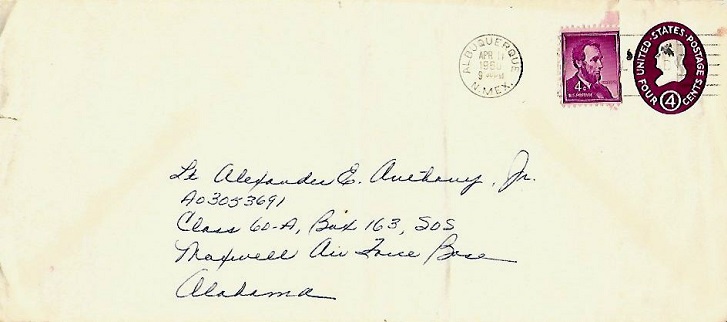 ALBUQUERQUE
APR 11
1960
N. MEX.
4¢
U.S. POSTAGE
UNITED·STATES·POSTAGE
4
FOUR CENTS
Lt Alexander E. Anthony, Jr.
AO3053691
Class 60-A, Box 163, SOS
Maxwell Air Force Base
Alabama